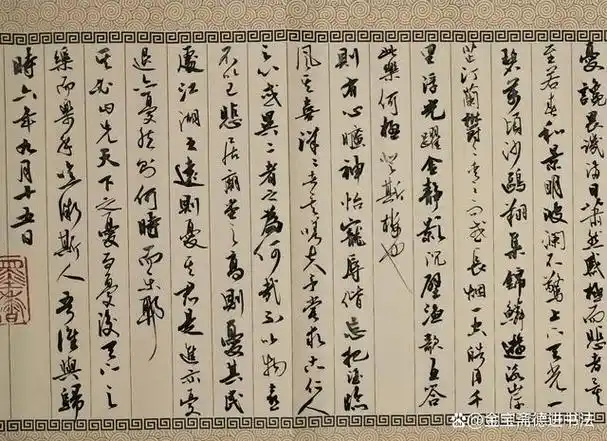 憂讒畏譏滿目蕭然感極而悲者矣
至若春和景明波瀾不驚上下天光一
碧萬頃沙鷗翔集錦鱗遊泳岸
芷汀蘭鬱〻青〻而或長烟一空皓月千
里浮光躍金靜影沉璧漁歌互答
此樂何極登斯樓也
則有心曠神怡寵辱偕忘把酒臨
風其喜洋〻者矣嗟夫予嘗求古仁人
之心或異二者之為何哉不以物喜
不以己悲居廟堂之高則憂其民
處江湖之遠則憂其君是進亦憂
退亦憂然則何時而樂耶
其必曰先天下之憂而憂後天下之
樂而樂乎噫微斯人吾誰與歸
時六年九月十五日
@金宝斋德进书法